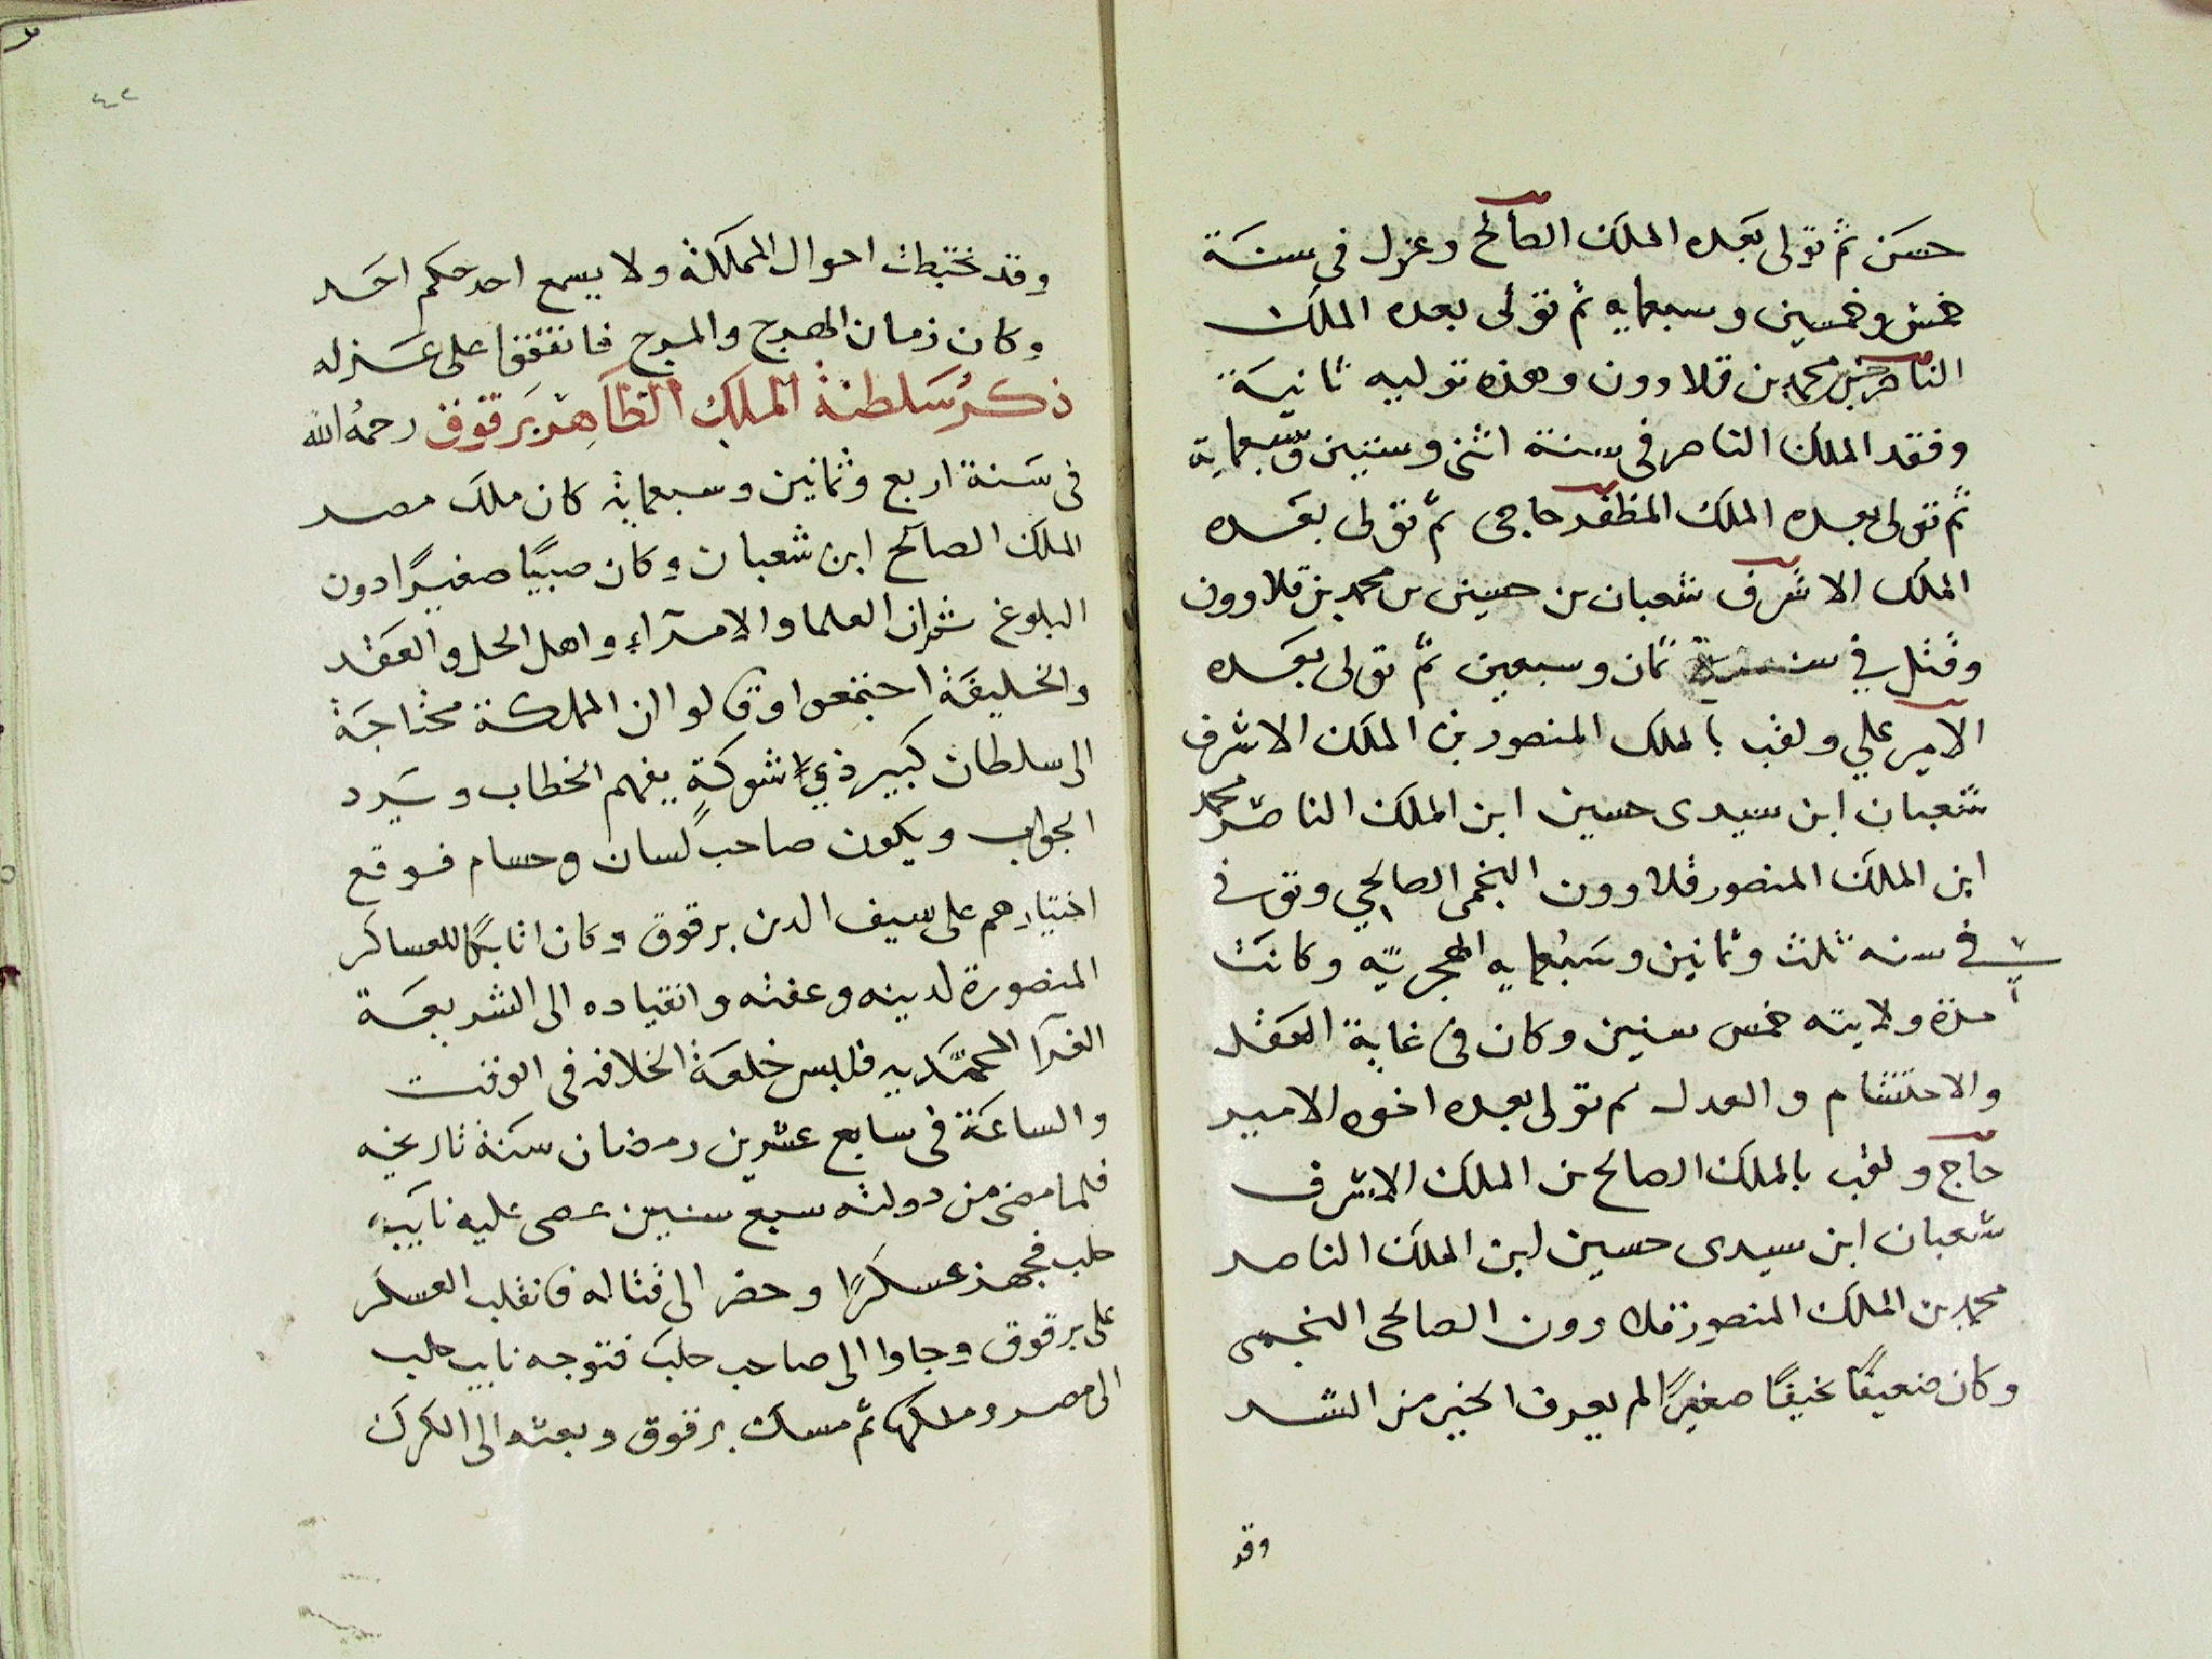 حسن ثم تولى بعده الملك الصالح وعزل في سنة
خمس وخمسين وسبعمايه ثم تولى بعده الملك
الناصر حسن بن محمد بن قلاوون وهذه توليه ثانية
وفقد الملك الناصر في سنة اثنى وستين وسبعماية
ثم تولى بعده الملك المظفر حاجى ثم تولى بعده
الملك الاشرف شعبان بن حسين بن محمد بن قلاوون
وقتل في سنة ثمان وسبعين ثم تولى بعده
الامير علي ولقب بالملك المنصور بن الملك الاشرف
شعبان ابن سيدى حسين ابن الملك الناصر محمد
ابن الملك المنصور قلاوون النجمى الصالحي وتوفي
في سنه ثلث وثمانين وسبعمايه الهجريه وكانت
مدة ولايته خمس سنين وكان في غاية العقل
والاحتشام والعدل ثم تولى بعده اخوه الامير
حاج ولقب بالملك الصالح بن الملك الاشرف
شعبان ابن سيدى حسين ابن الملك الناصر
محمد بن الملك المنصور قلاوون الصالحى النجمى
وكان ضعيفًا نحيفًا صغيرًا لم يعرف الخير من الشر
وقد
٤٢
وقد تخبطت احوال المملكة ولا يسمع احد حكم احد
وكان زمان الهرج والمرج فاتفقوا على عزله
ذكر سلطنة الملك الظاهر برقوق رحمه الله
في سنة اربع وثمانين وسبعماية كان ملك مصر
الملك الصالح ابن شعبان وكان صبيًا صغيرًا دون
البلوغ ثم ان العلما والامرآء واهل الحل والعقد
والخليفة اجتمعوا وقالوا ان المملكة محتاجة
الى سلطان كبير ذي شوكةٍ يفهم الخطاب ويرد
الجواب ويكون صاحب لسان وحسام فوقع
اختيارهم على سيف الدين برقوق وكان اتابكًا للعساكر
المنصورة لدينه وعفته وانقياده الى الشريعة
الغرا المحمديه فلبس خلعة الخلافه في الوقت
والساعة في سابع عشرين رمضان سنة تاريخه
فلما مضى من دولته سبع سنين عصى عليه نايب
حلب فجهز عسكرًا وحضر الى قتاله فانقلب العسكر
على برقوق وجاوا الى صاحب حلب فتوجه نايب حلب
الى مصر وملكها ثم مسك برقوق وبعثه الى الكرك